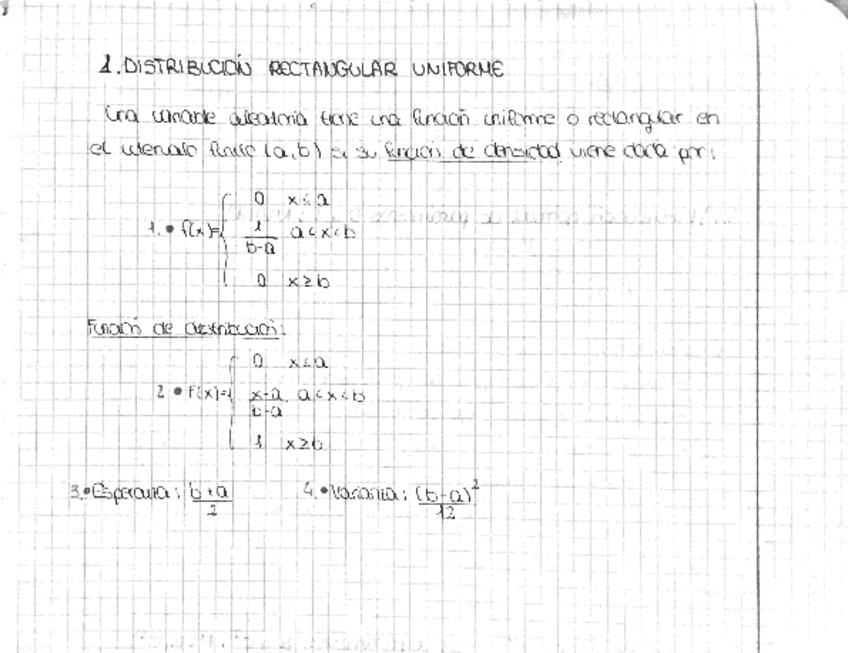 1. DISTRIBUCIÓN RECTANGULAR UNIFORME
Una variable aleatoria tiene una función uniforme o rectangular en
el intervalo finito (a,b) si su función de densidad viene dada por:
0 x≤a
1. • f(x)={ 1/(b-a) a<x<b
0 x≥b
Función de distribución:
0 x≤a
2 • F(x)={ (x-a)/(b-a) a<x<b
1 x≥b
3.• Esperanza: (b+a)/2 4.• Varianza: (b-a)²/12